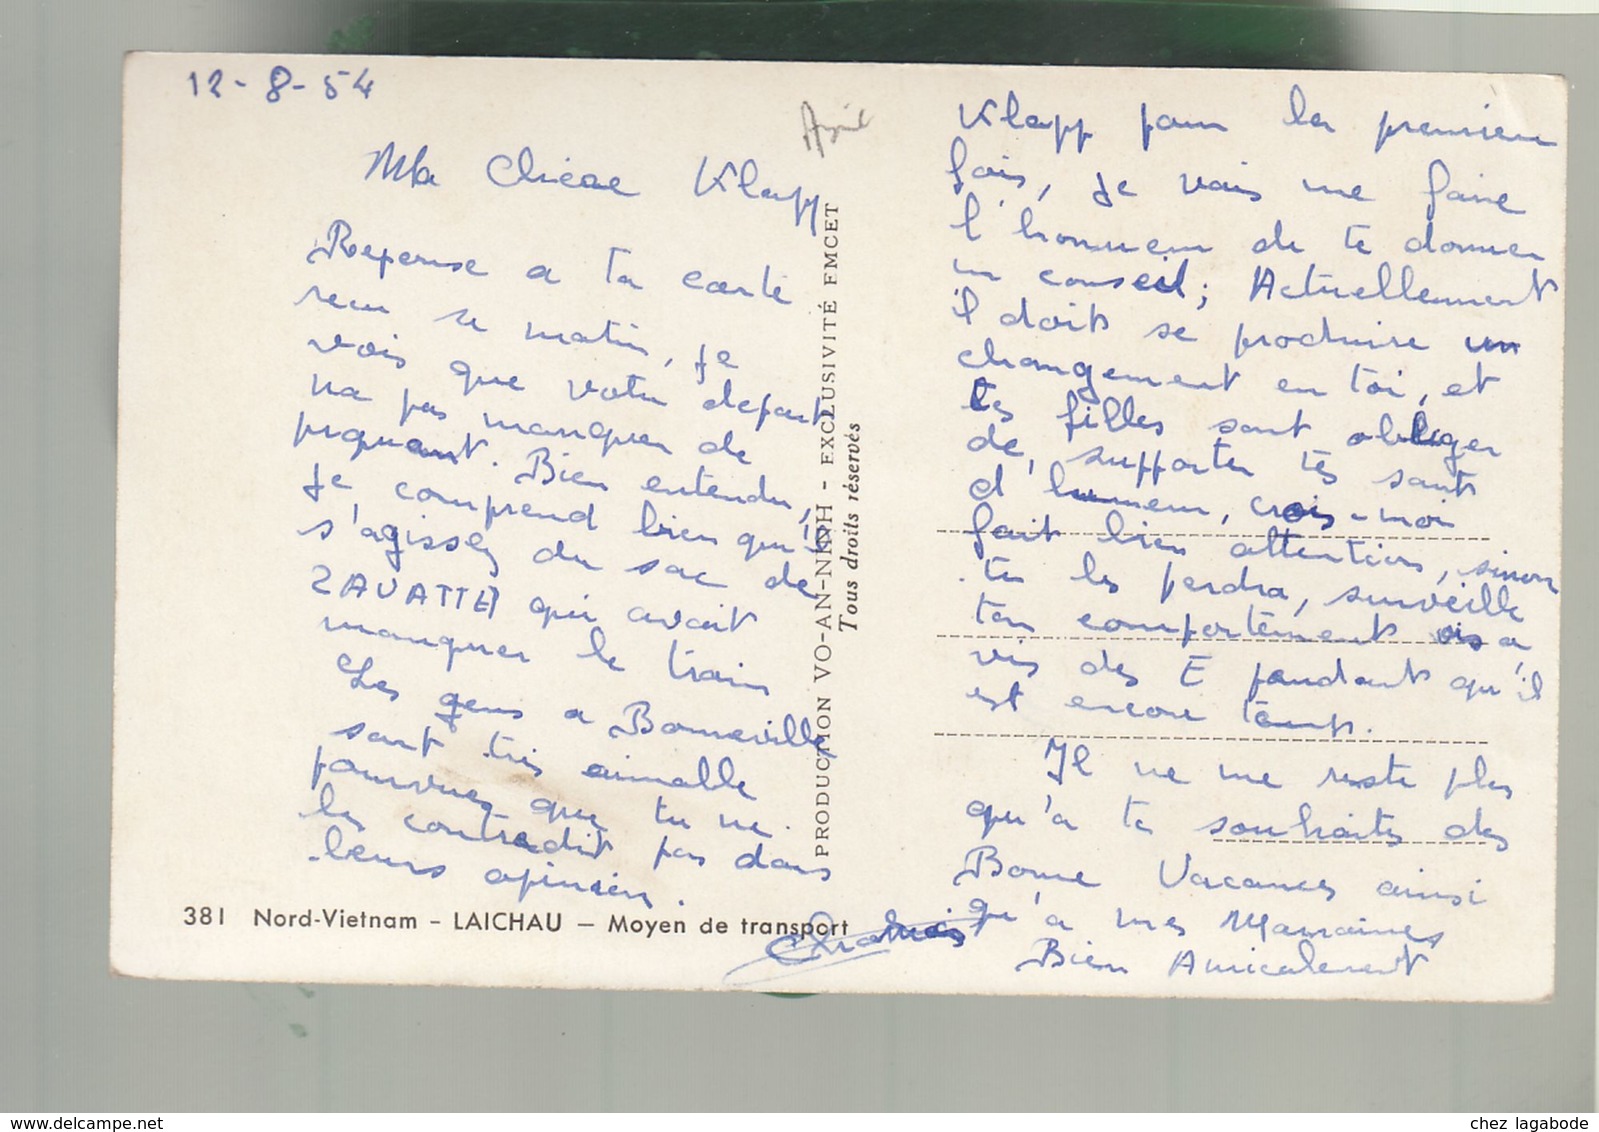 12-8-54
Ma Chere Klapp
Reponse a ta carte
recu se matin, je
vois que votre depart
na pas manquer de
piquant. Bien entendu,
je comprend bien qu'il
s'agissez du sac de
ZAVATTEI qui avait
manquer le train
Les gens a Bonneville
sont tres aimable
pourvues que tu ne
les contredit pas dans
leurs opinien.
381 Nord-Vietnam - LAICHAU — Moyen de transport
PRODUCTION VO-AN-NINH - EXCLUSIVITÉ EMCET
Tous droits réservés
Asie
Klapp pour la premiere
fois, je vais me faire
l'honneur de te donner
un conseil; Actuellement
il doit se produire un
changement en toi, et
les filles sont obliger
de, supporter tes sauts
d'humeur, crois-moi
fait bien attention, sinon
tu les perdra, surveille
ton comportement vis a
vis des E pendant qu'il
est encore temp.
Il ne me reste plus
qu'a te souhaites des
Bonne Vacances ainsi
qu'a mes Marraines
Bien Amicalement
chez lagabode